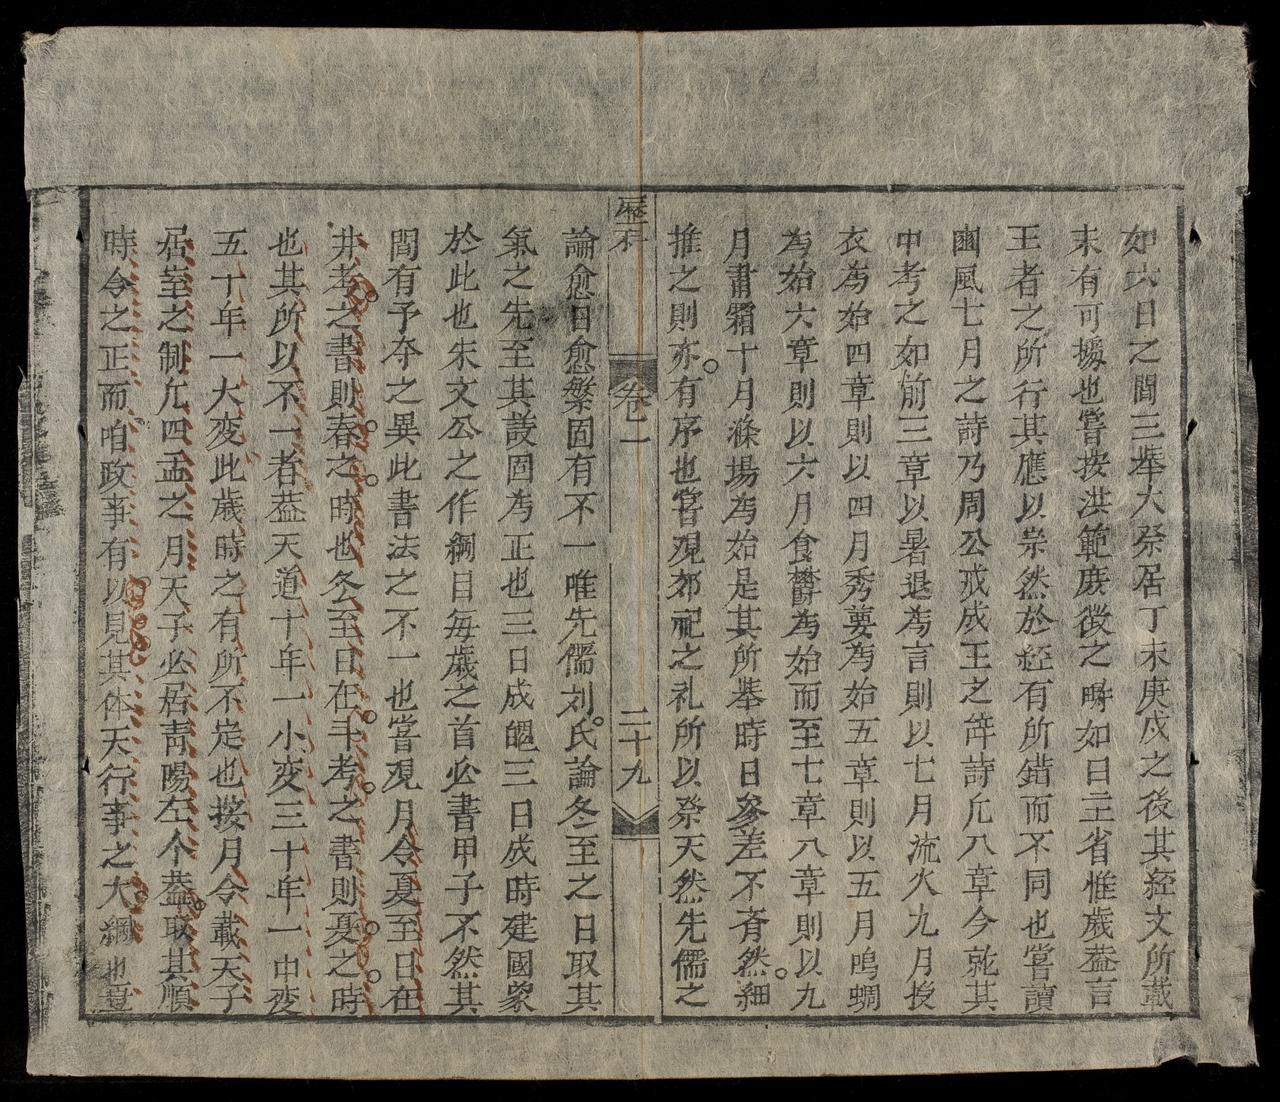 如六日之間三舉大祭居丁未庚戍之後其経文所載
未有可據也嘗按洪範庻徴之疇如曰王省惟歲葢言
王者之所行其應以祟然於経有所錯而不同也嘗讀
豳風七月之詩乃周公戒成王之詩凢八章今就其
中考之如前三章以暑退為言則以七月流火九月授
衣為始四章則以四月秀葽為始五章則以五月鳴蜩
為始六章則以六月食欝為始而至七章八章則以九
月肅霜十月滌場為始是其所舉時日參差不斉然細
推之則亦有序也嘗观郊祀之礼所以祭天然先儒之
曆科 卷一 二十九
論愈日愈繁固有不一唯先儒刘氏論冬至之日取其
氣之先至其設固為正也三日成魄三日成時建國象
於此也朱文公之作綱目每歲之首必書甲子不然其
間有予夺之異此書法之不一也嘗观月令夏至日在
井考之書則春之時也冬至日在斗考之書則夏之時
也其所以不一者葢天道十年一小变三十年一中变
五十年一大变此歲時之有所不定也按月令載天子
居室之制凢四孟之月天子必居青陽左个葢取其順
時令之正而咱政事有以見其体天行事之大綱也豈